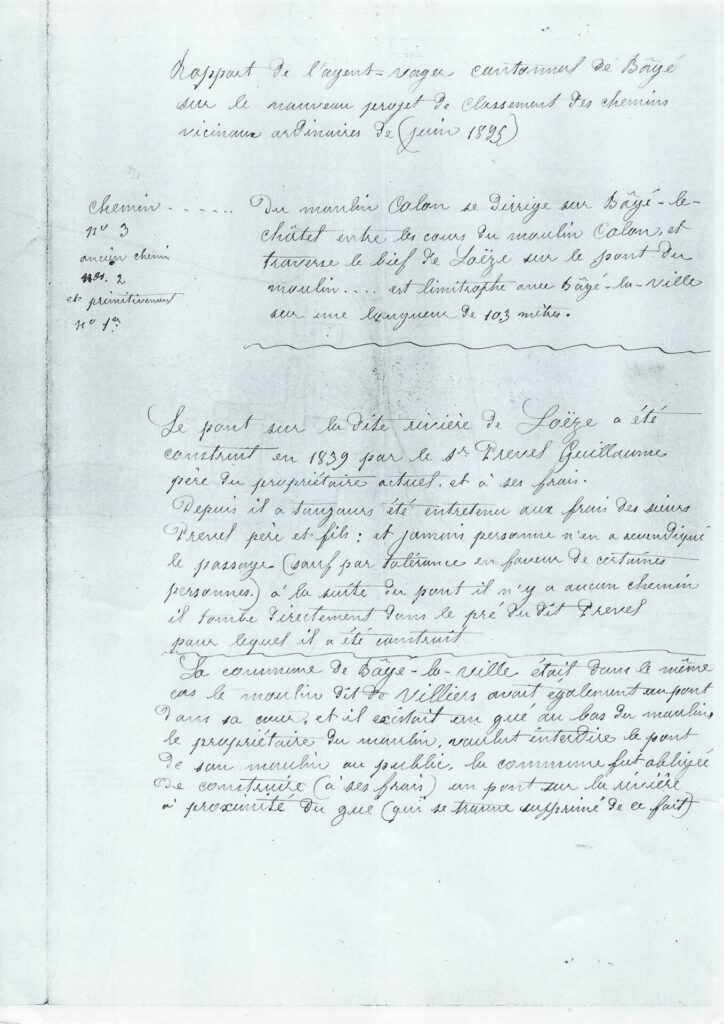 Rapport de l'agent-voyer cantonnal de Bâgé
sur le nouveau projet de classement des chemins
vicinaux ordinaires de (juin 1895)
chemin ......
nº 3
ancien chemi
nº 2
et primitivement
nº 1er
Du moulin Colon se dirrige sur Bâgé-le-
châtel entre les cours du moulin Colon, et
traverse le bief de Loëze sur le pont du
moulin .... est limitrophe avec Bâgé-la-ville
sur une longueur de 103 mètres.
Le pont sur la dite rivière de Loëze a été
construit en 1839 par le Sr Prevel Guillaume
père du propriétaire actuel, et à ses frais.
Depuis il a toujours été entretenu aux frais des sieurs
Prevel père et fils ; et jamais personne n'en a revendiqué
le passage (sauf par tolérance en faveur de certaines
personnes.) à la suite du pont il n'y a aucun chemin
il tombe directement dans le pré du dit Prevel
pour lequel il a été construit
La commune de Bâgé-la-ville était dans le même
cas le moulin dit de Villiers avait également un pont
dans sa cour, et il existait un gué au bas du moulin,
le propriétaire du moulin, voulut interdire le pont
de son moulin au public, la commune fut obligée
de construire (à ses frais) un pont sur la rivière
à proximité du gue (qui se trouve supprimé de ce fait)